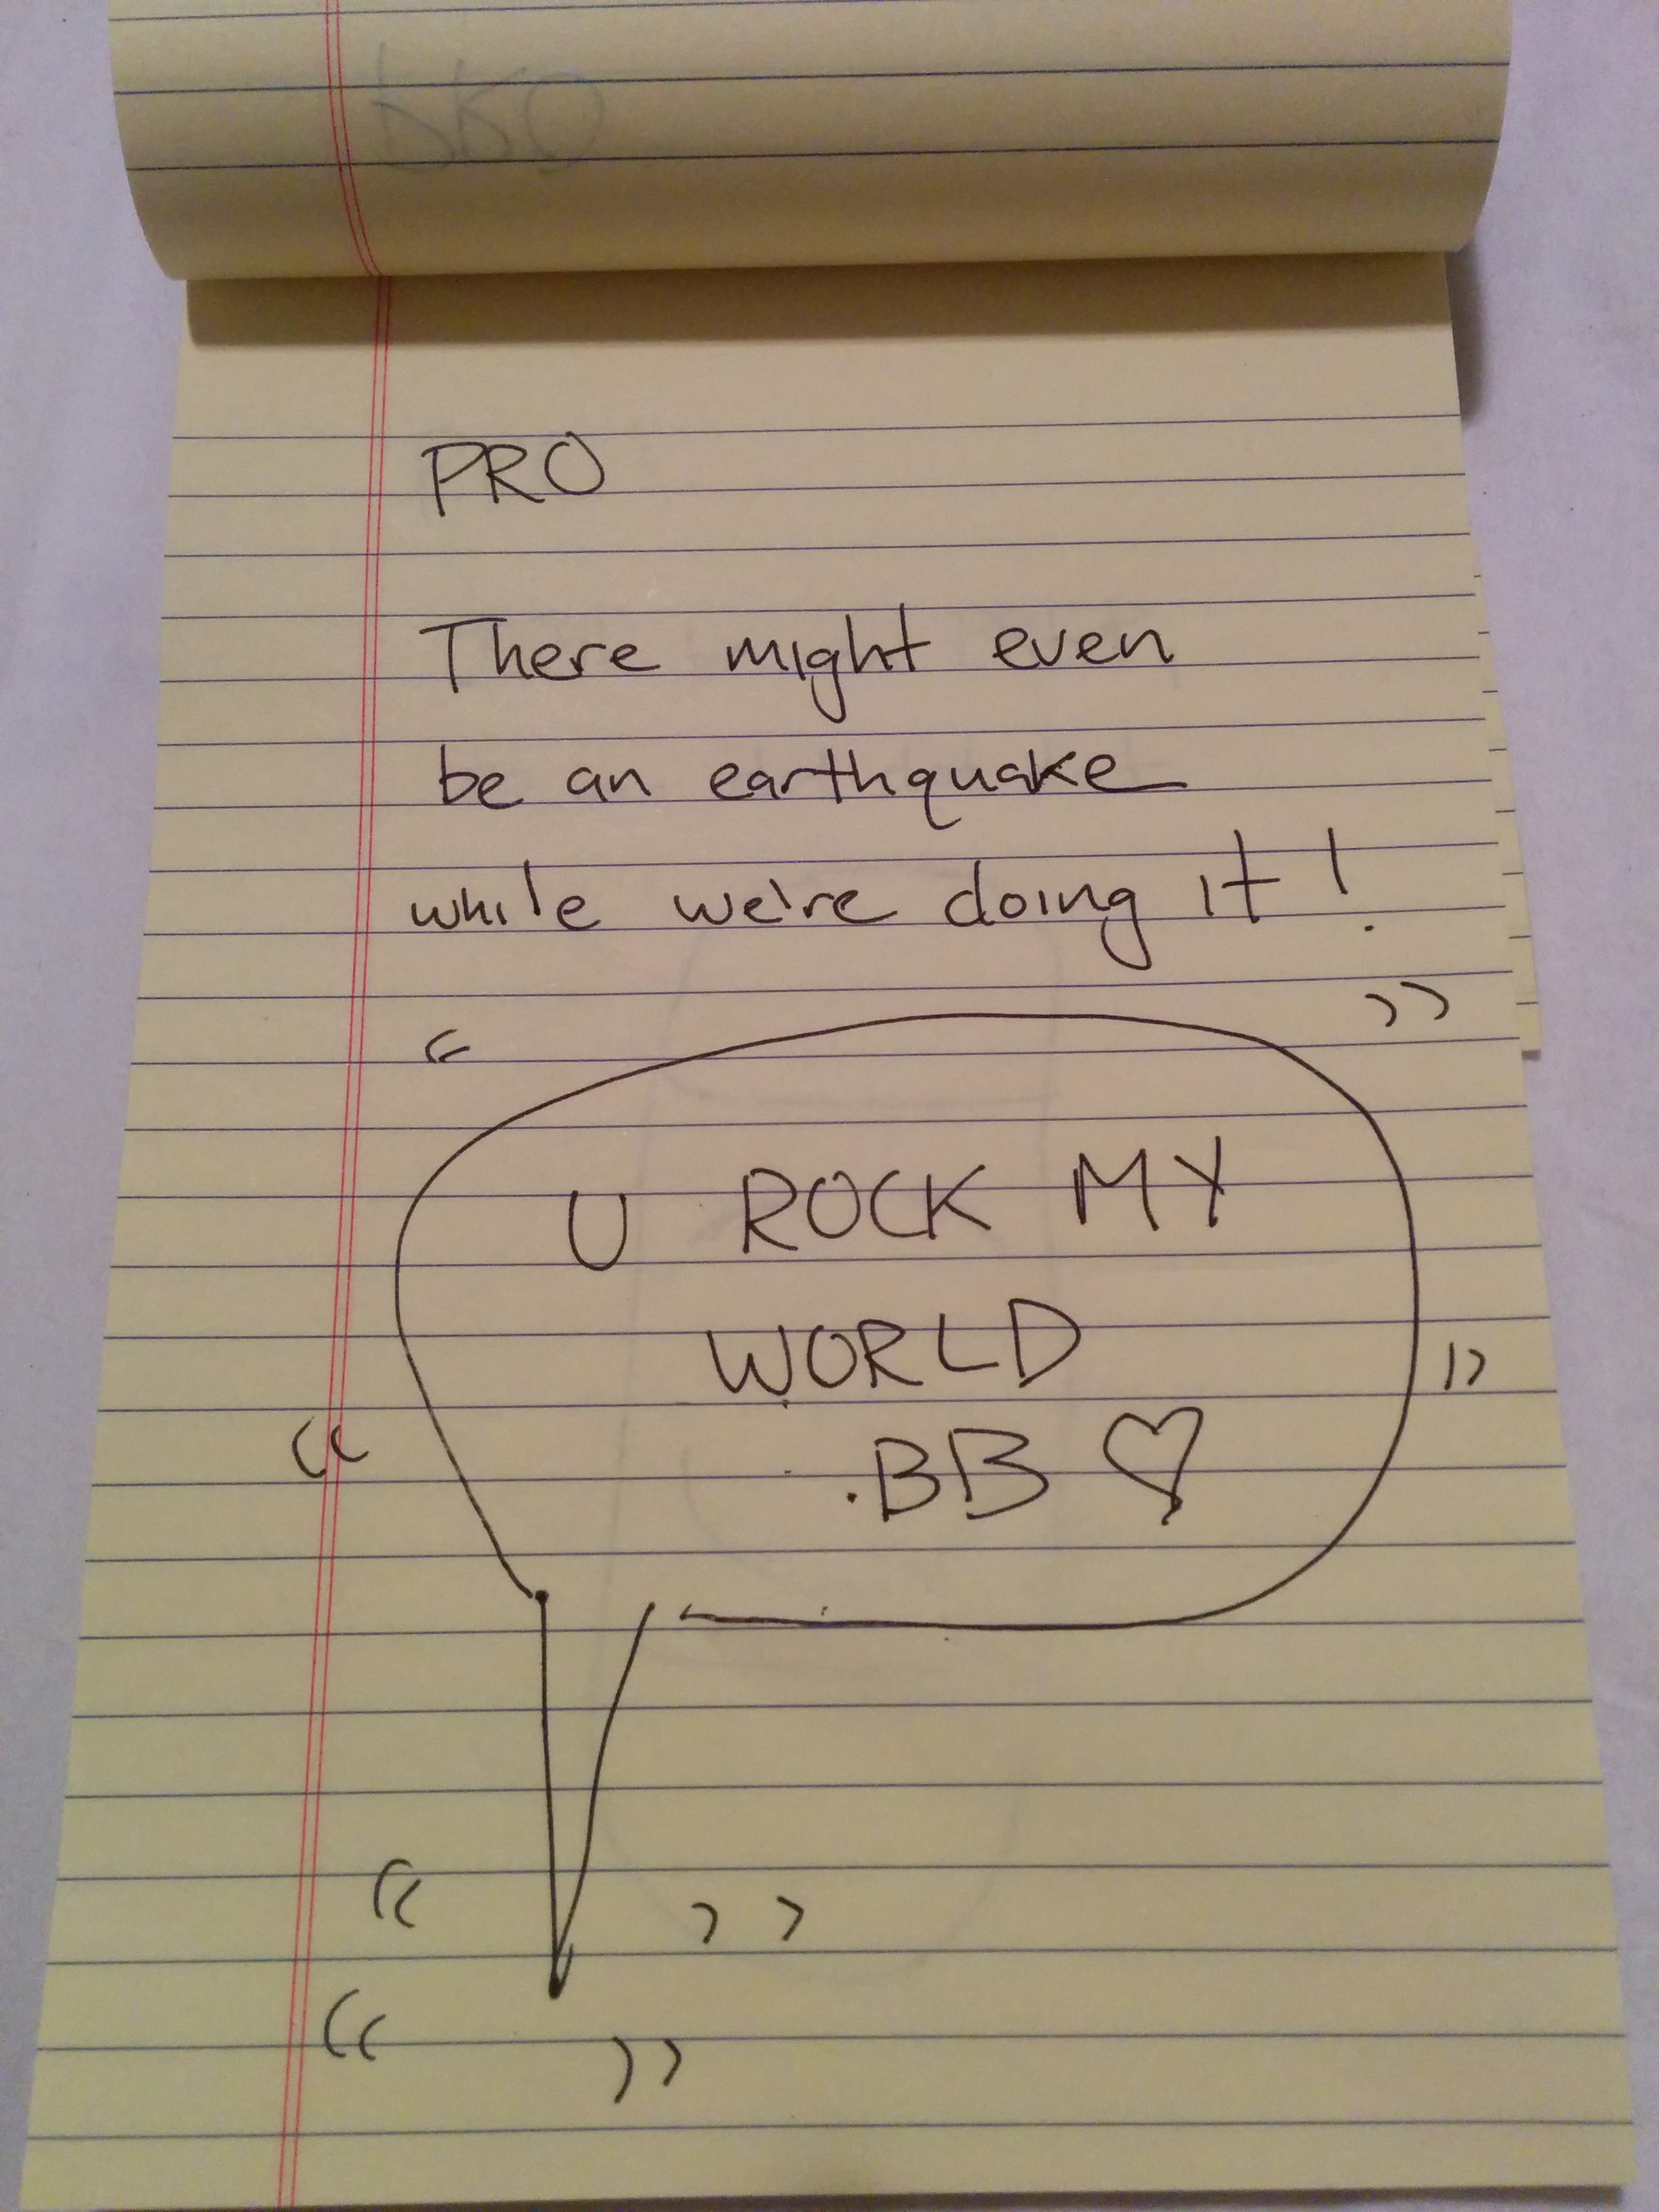 PRO
PRO
There might even
be an earthquake
while we're doing it!
U ROCK MY
WORLD
.BB ♡